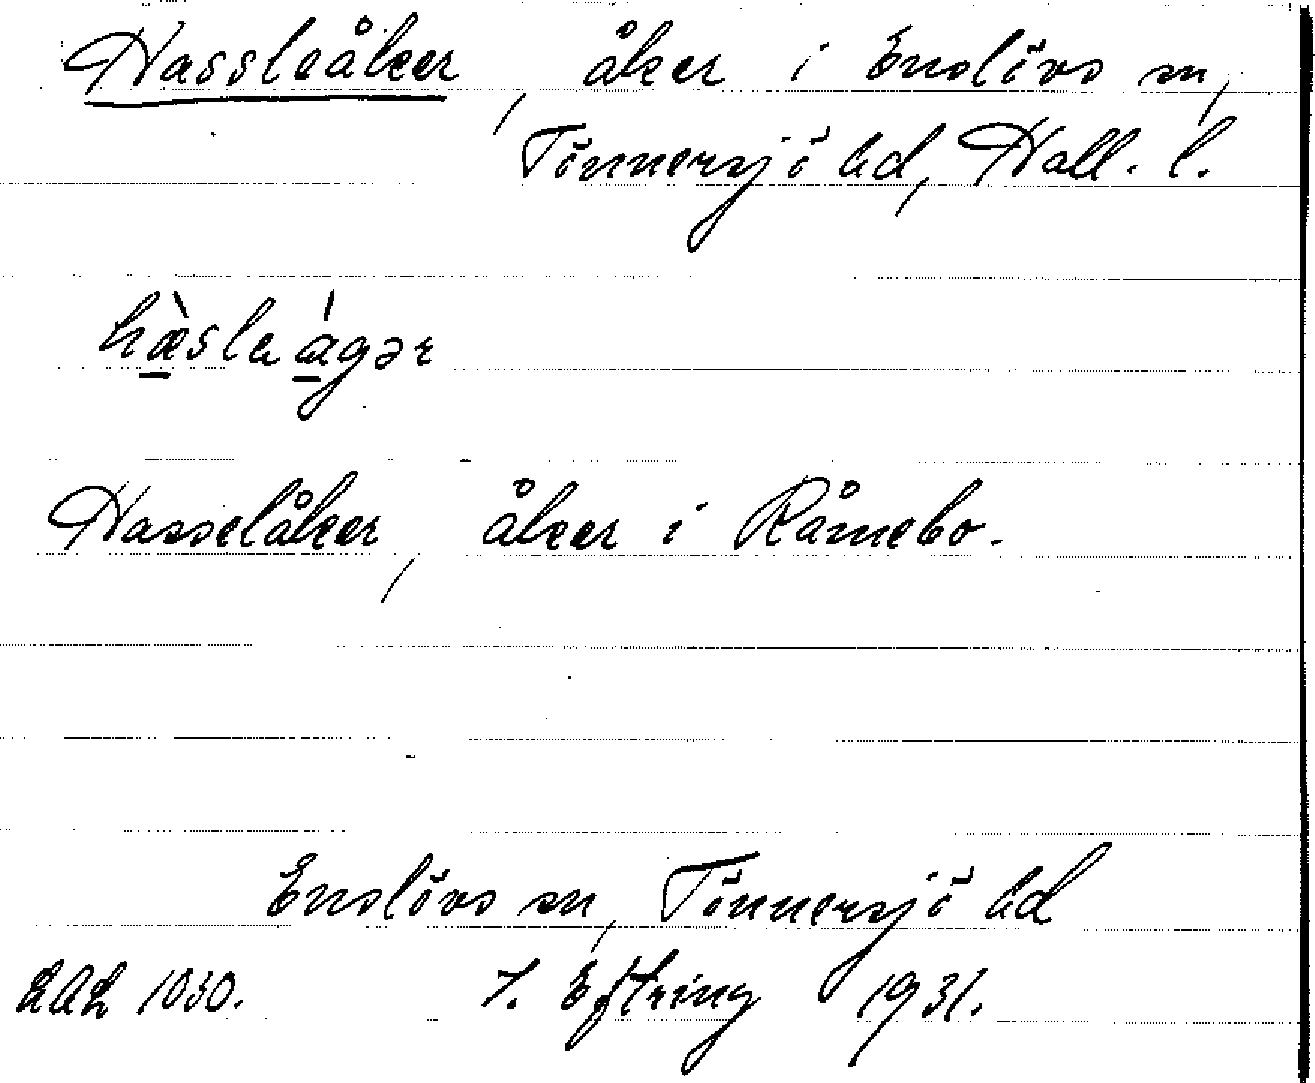 Hassleåker, åker i Enslövs sn,
Tönnersjö hd, Hall. l.
hæ̀slaágər
Hasselåker, åker i Råmebo.
Enslövs sn, Tönnersjö hd
LAL 1030. J. Eftring 1931.